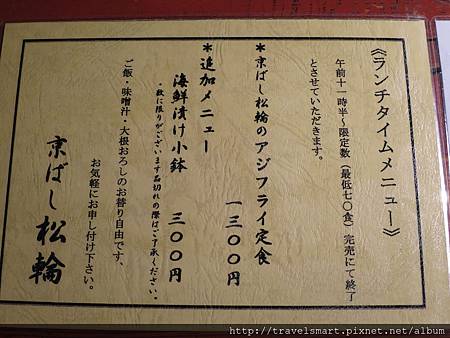 《ランチタイムメニュー》
午前十一時半～限定数(最低七〇食)完売にて終了
とさせていただきます。
＊京ばし松輪のアジフライ定食
一三〇〇円
＊追加メニュー
海鮮漬け小鉢 三〇〇円
・数に限りがございます品切れの際はご了承ください。
ご飯・味噌汁・大根おろしのお替り自由です、
お気軽にお申し付け下さい。
京ばし松輪
http://travelsmart.pixnet.net/album